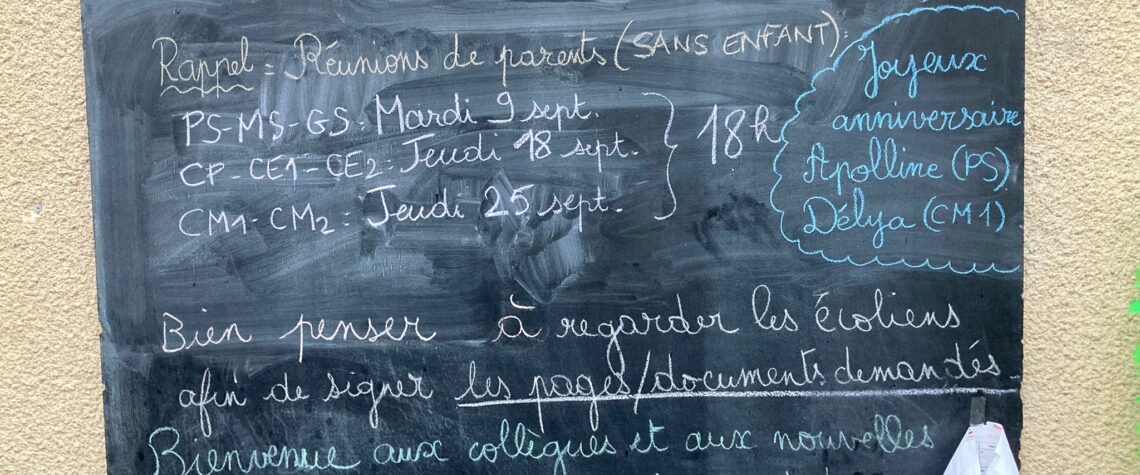 Rappel = Réunions de parents (SANS ENFANT):
PS-MS-GS: Mardi 9 sept.
CP-CE1-CE2: Jeudi 18 sept.
CM1-CM2: Jeudi 25 sept.
18h
Joyeux
anniversaire
Apolline (PS)
Délya (CM1)
Bien penser à regarder les écoliens
afin de signer les pages/documents demandés.
Bienvenue aux collègues et aux nouvelles